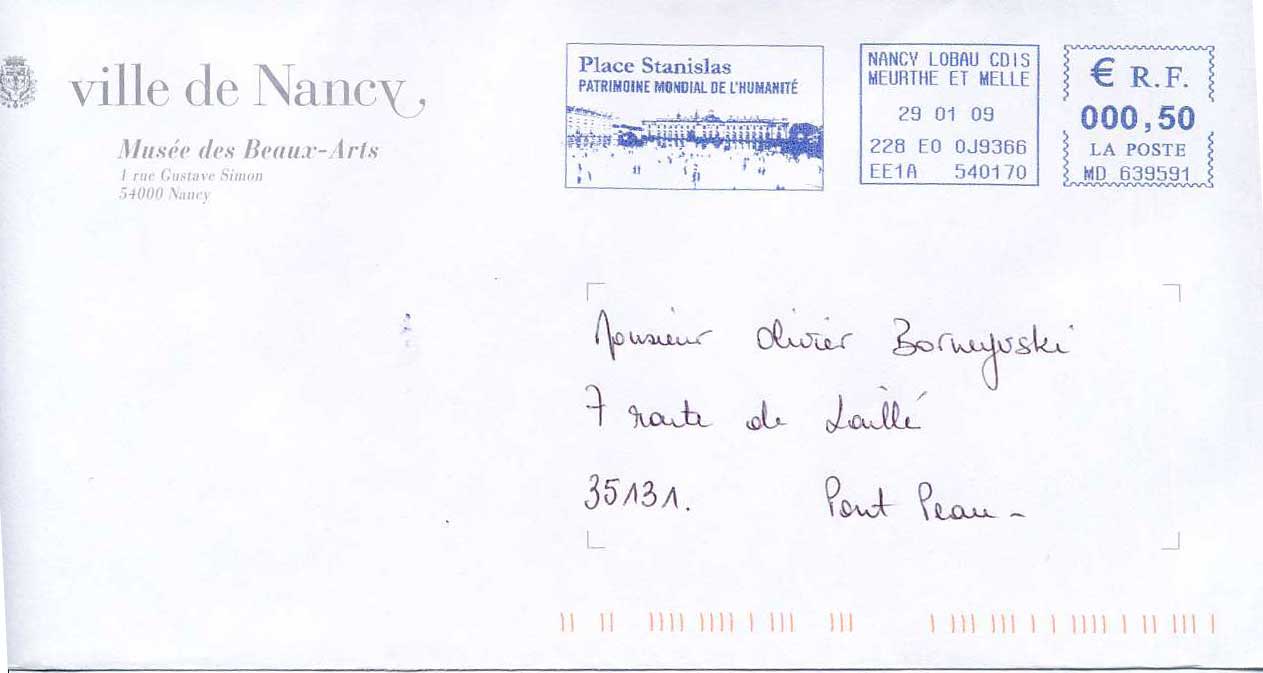 ville de Nancy,
Musée des Beaux-Arts
1 rue Gustave Simon
54000 Nancy
Place Stanislas
PATRIMOINE MONDIAL DE L'HUMANITÉ
NANCY LOBAU CDIS
MEURTHE ET MELLE
29 01 09
228 E0 0J9366
EE1A 540170
€ R.F.
000,50
LA POSTE
MD 639591
Monsieur Olivier Borneyvski
7 route de Laillé
35131. Pont Pean -